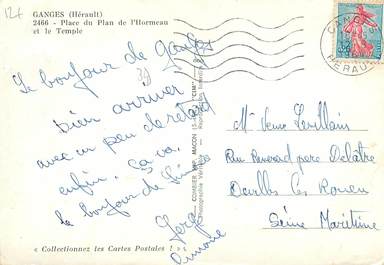 GANGES (Hérault)
2466 - Place du Plan de l'Hormeau
et le Temple
Le bonjour de Ganges
bien arriver
avec un peu de retard
enfin. Ça va.
le bonjour de
Serge
Simone
« Collectionnez les Cartes Postales ! »
COMBIER IMP. MACON "CIM"
GANGES
HERAULT
Mme Veuve Levillain
Rue Reverend pere Delatre
Deville les Rouen
Seine Maritime